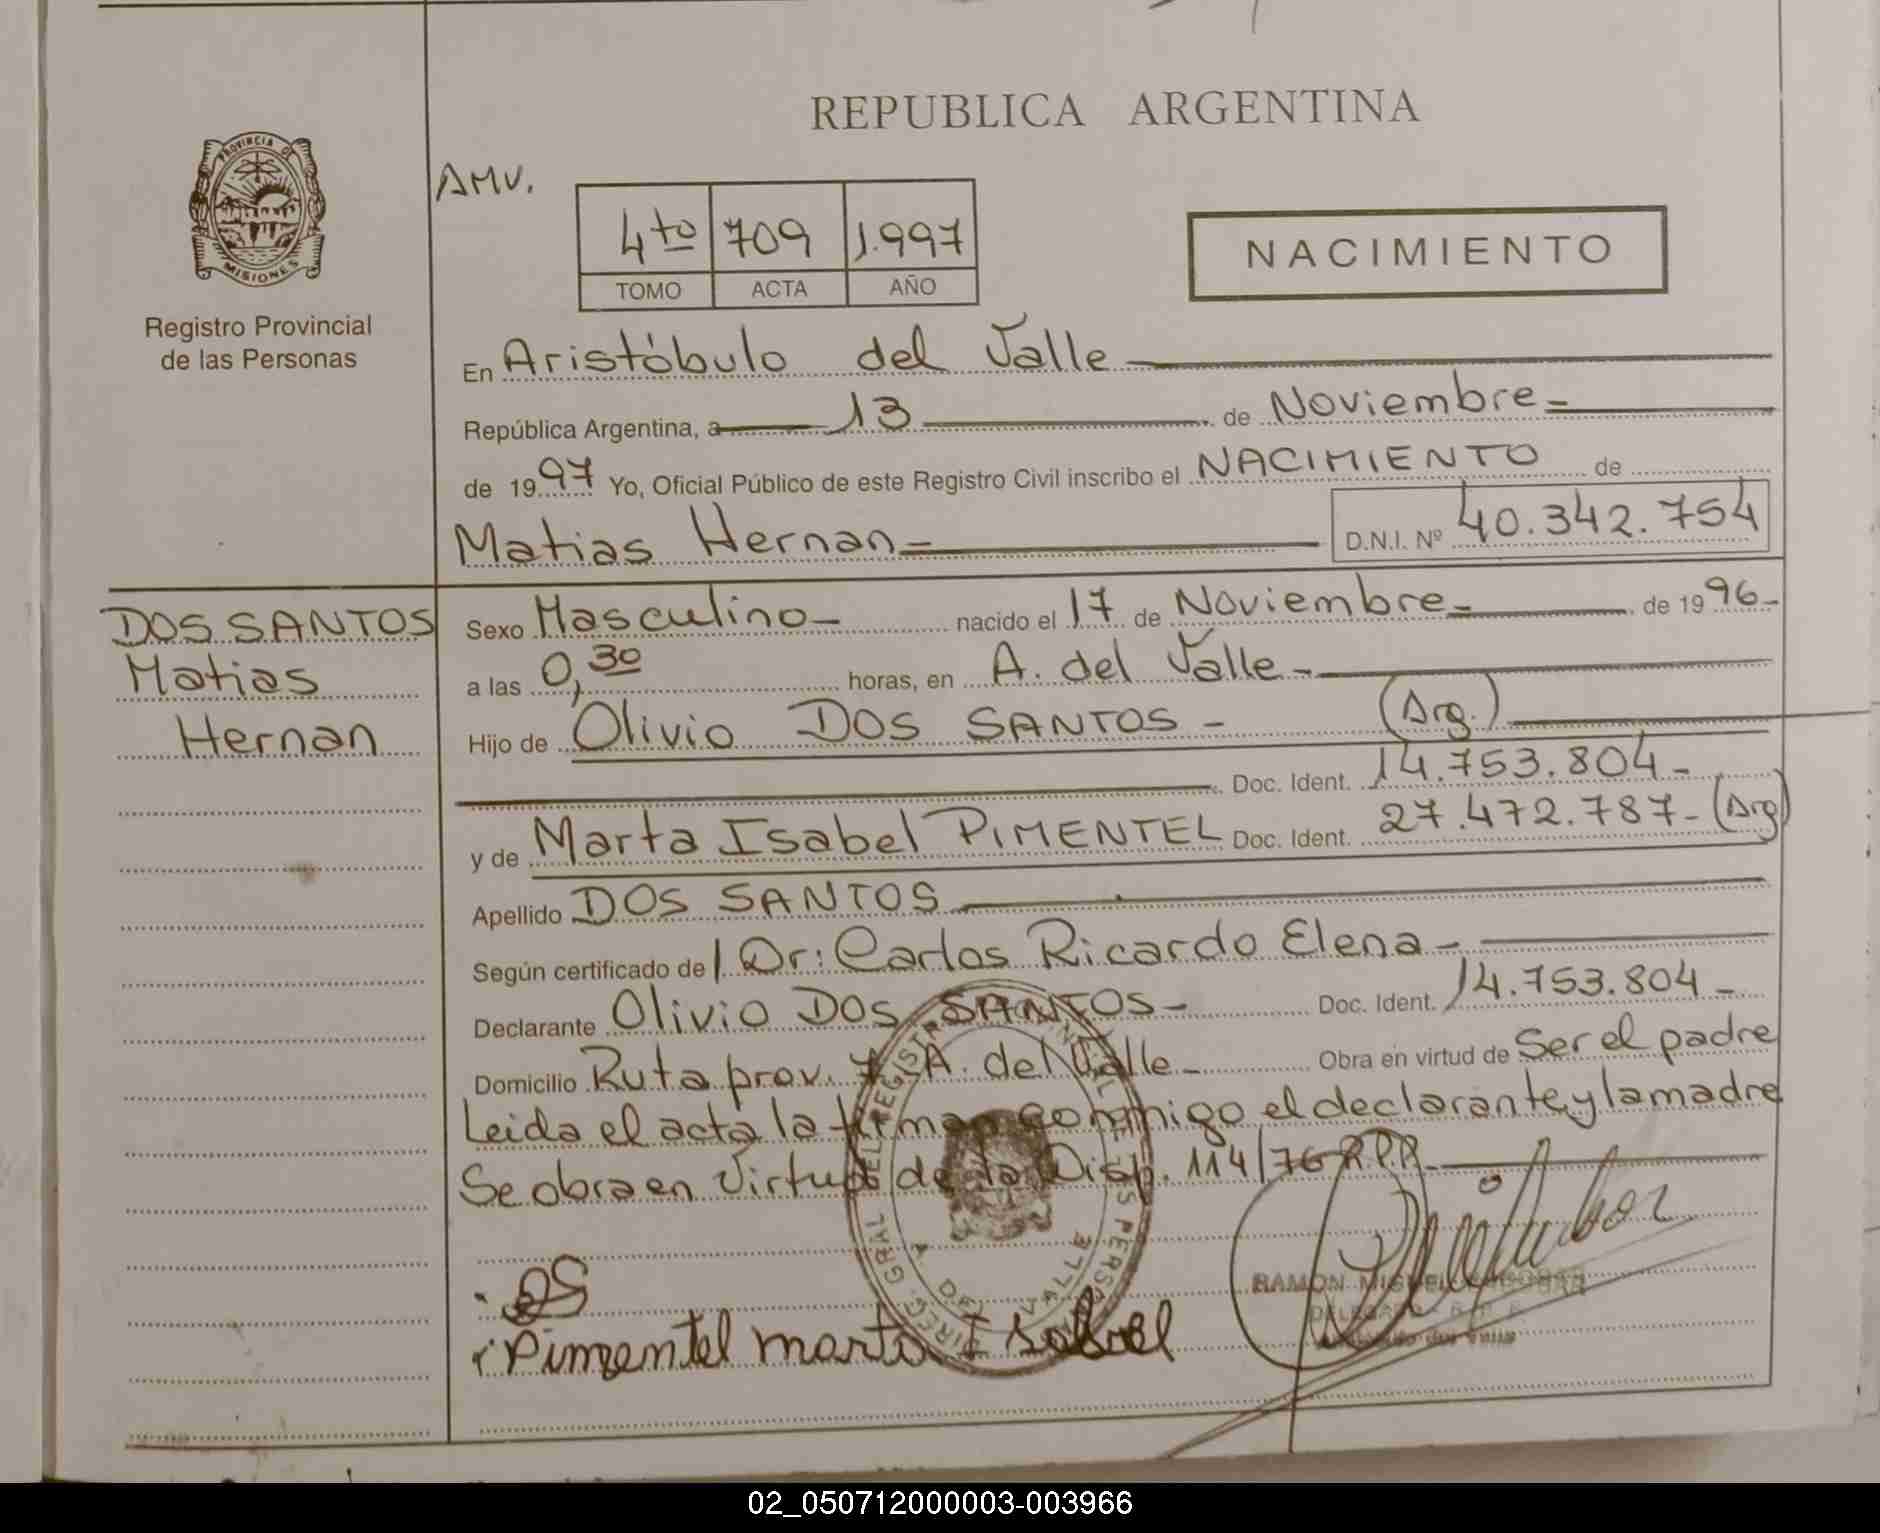 REPUBLICA ARGENTINA
PROVINCIA DE
MISIONES
Registro Provincial
de las Personas
AMV.
4to 709 1.997
TOMO ACTA AÑO
NACIMIENTO
En Aristóbulo del Valle
República Argentina, a 13 de Noviembre
de 1997 Yo, Oficial Público de este Registro Civil inscribo el NACIMIENTO de
Matias Hernan D.N.I. Nº 40.342.754
DOS SANTOS
Matias
Hernan
Sexo Masculino nacido el 17 de Noviembre de 1996
a las 0,30 horas, en A. del Valle
Hijo de Olivio DOS SANTOS (Arg.)
Doc. Ident. 14.753.804
y de Marta Isabel PIMENTEL Doc. Ident. 27.472.787 (Arg)
Apellido DOS SANTOS
Según certificado de Dr: Carlos Ricardo Elena
Declarante Olivio DOS SANTOS Doc. Ident. 14.753.804
Domicilio Ruta prov. 7 A. del Valle Obra en virtud de Ser el padre
Leida el acta la firman conmigo el declarante y la madre
Se obra en Virtud de la Disp. 114/76 R.P.P.
Pimentel marta Isabel
RAMON MIGUEL
A. DEL VALLE
02_050712000003-003966